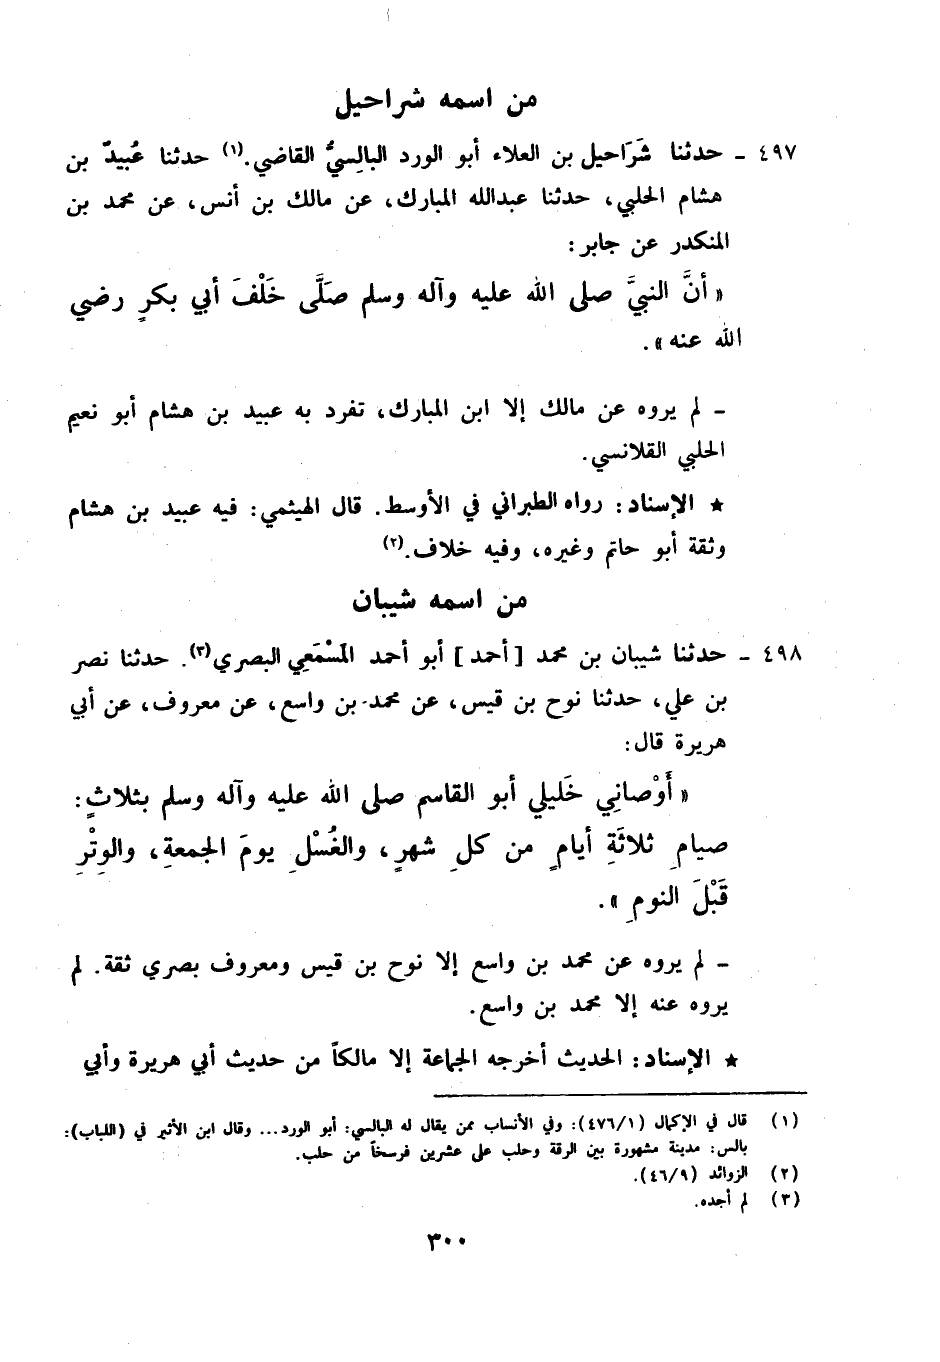 من اسمه شراحيل
٤٩٧ - حدثنا شَرَاحيل بن العلاء أبو الورد البالِسيُّ القاضي.(١) حدثنا عُبيدٌ بن
هشام الحلبي، حدثنا عبدالله المبارك، عن مالك بن أنس، عن محمد بن
المنكدر عن جابر:
« أنَّ النبيَّ صلى الله عليه وآله وسلم صَلَّى خَلْفَ أبي بكرٍ رضي
الله عنه ».
- لم يروه عن مالك إلا ابن المبارك، تفرد به عبيد بن هشام أبو نعيم
الحلبي القلانسي.
★ الإسناد: رواه الطبراني في الأوسط. قال الهيثمي: فيه عبيد بن هشام
وثقة أبو حاتم وغيره، وفيه خلاف.(٢)
من اسمه شيبان
٤٩٨ - حدثنا شيبان بن محمد [ أحمد ] أبو أحمد المَسْمَعي البصري(٣). حدثنا نصر
بن علي، حدثنا نوح بن قيس، عن محمد بن واسع، عن معروف، عن أبي
هريرة قال:
« أَوْصانِي خَليلي أبو القاسم صلى الله عليه وآله وسلم بثلاثٍ:
صيامِ ثلاثَةِ أيامٍ من كلِ شهرٍ، والغُسْلِ يومَ الجمعةِ، والوِتْرِ
قَبْلَ النومِ ».
- لم يروه عن محمد بن واسع إلا نوح بن قيس ومعروف بصري ثقة. لم
يروه عنه إلا محمد بن واسع.
★ الإسناد: الحديث أخرجه الجماعة إلا مالكاً من حديث أبي هريرة وأبي
(١) قال في الإكمال (٤٧٦/١): وفي الأنساب ممن يقال له البالسي: أبو الورد... وقال ابن الأثير في (اللباب):
بالس: مدينة مشهورة بين الرقة وحلب على عشرين فرسخاً من حلب.
(٢) الزوائد (٤٦/٩).
(٣) لم أجده.
٣٠٠